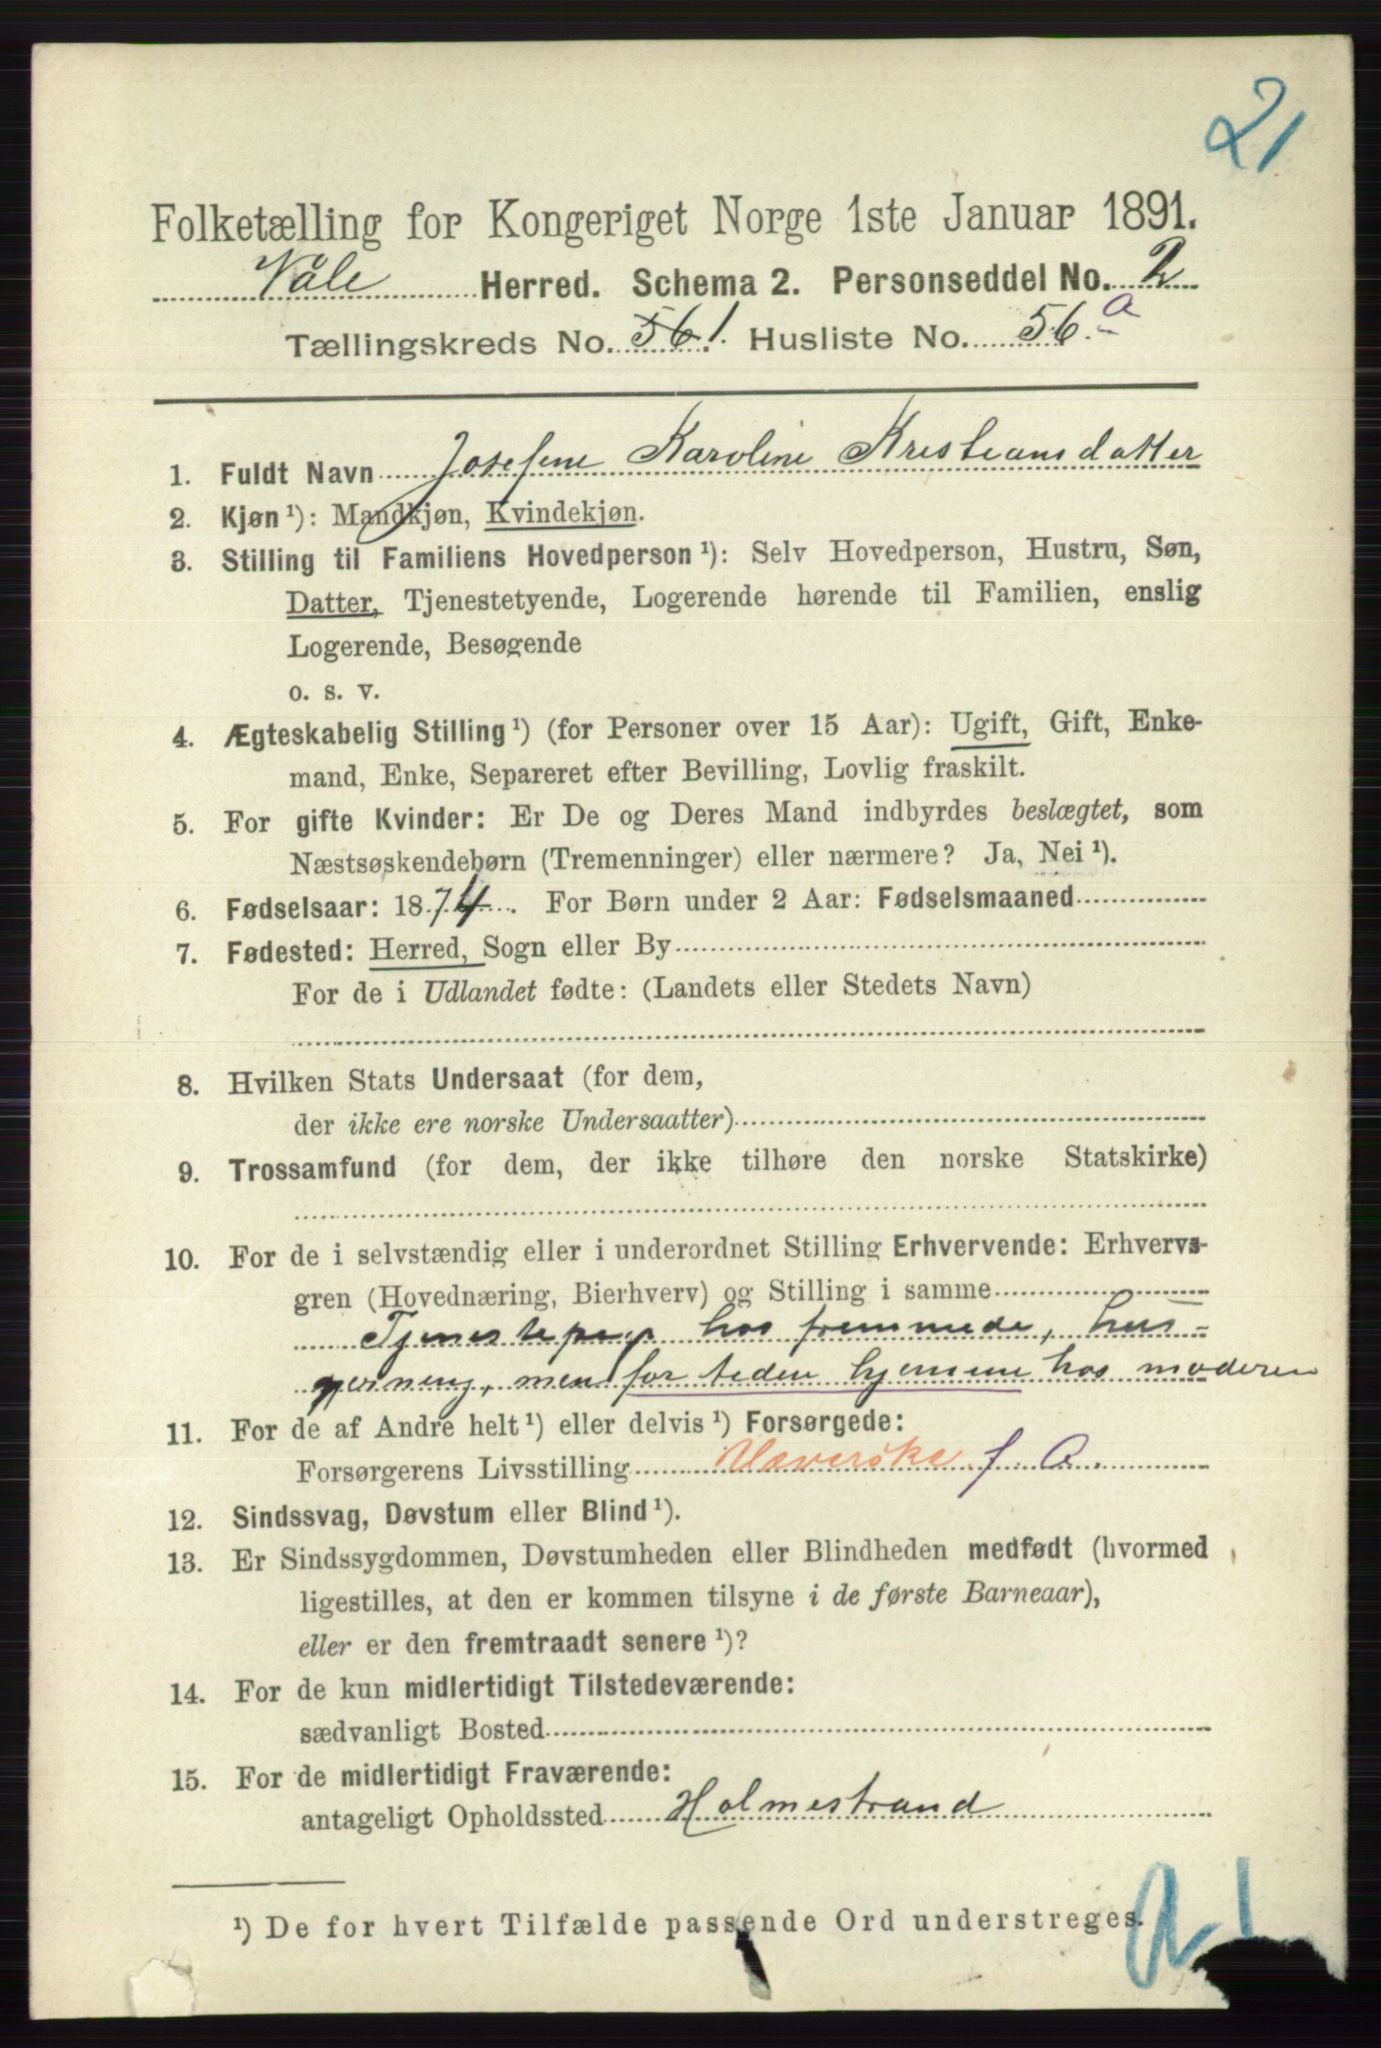 21
Folketælling for Kongeriget Norge 1ste Januar 1891.
Våle Herred. Schema 2. Personseddel No. 2
Tællingskreds No. 56 1. Husliste No. 56 a
1. Fuldt Navn Josefine Karoline Kristiansdatter
2. Kjøn¹): Mandkjøn, Kvindekjøn.
3. Stilling til Familiens Hovedperson¹): Selv Hovedperson, Hustru, Søn,
Datter, Tjenestetyende, Logerende hørende til Familien, enslig
Logerende, Besøgende
o. s. v.
4. Ægteskabelig Stilling¹) (for Personer over 15 Aar): Ugift, Gift, Enke-
mand, Enke, Separeret efter Bevilling, Lovlig fraskilt.
5. For gifte Kvinder: Er De og Deres Mand indbyrdes beslægtet, som
Næstsøskendebørn (Tremenninger) eller nærmere? Ja, Nei¹).
6. Fødselsaar: 1874. For Børn under 2 Aar: Fødselsmaaned
7. Fødested: Herred, Sogn eller By
For de i Udlandet fødte: (Landets eller Stedets Navn)
8. Hvilken Stats Undersaat (for dem,
der ikke ere norske Undersaatter)
9. Trossamfund (for dem, der ikke tilhøre den norske Statskirke)
10. For de i selvstændig eller i underordnet Stilling Erhvervende: Erhvervs-
gren (Hovednæring, Bierhverv) og Stilling i samme
Tjenestepige hos fremmede, hus-
gjerning, men for tiden hjemme hos moderen
11. For de af Andre helt¹) eller delvis¹) Forsørgede:
Forsørgerens Livsstilling Væverske f. A.
12. Sindssvag, Døvstum eller Blind¹).
13. Er Sindssygdommen, Døvstumheden eller Blindheden medfødt (hvormed
ligestilles, at den er kommen tilsyne i de første Barneaar),
eller er den fremtraadt senere¹)?
14. For de kun midlertidigt Tilstedeværende:
sædvanligt Bosted
15. For de midlertidigt Fraværende:
antageligt Opholdssted Holmestrand
¹) De for hvert Tilfælde passende Ord understreges.